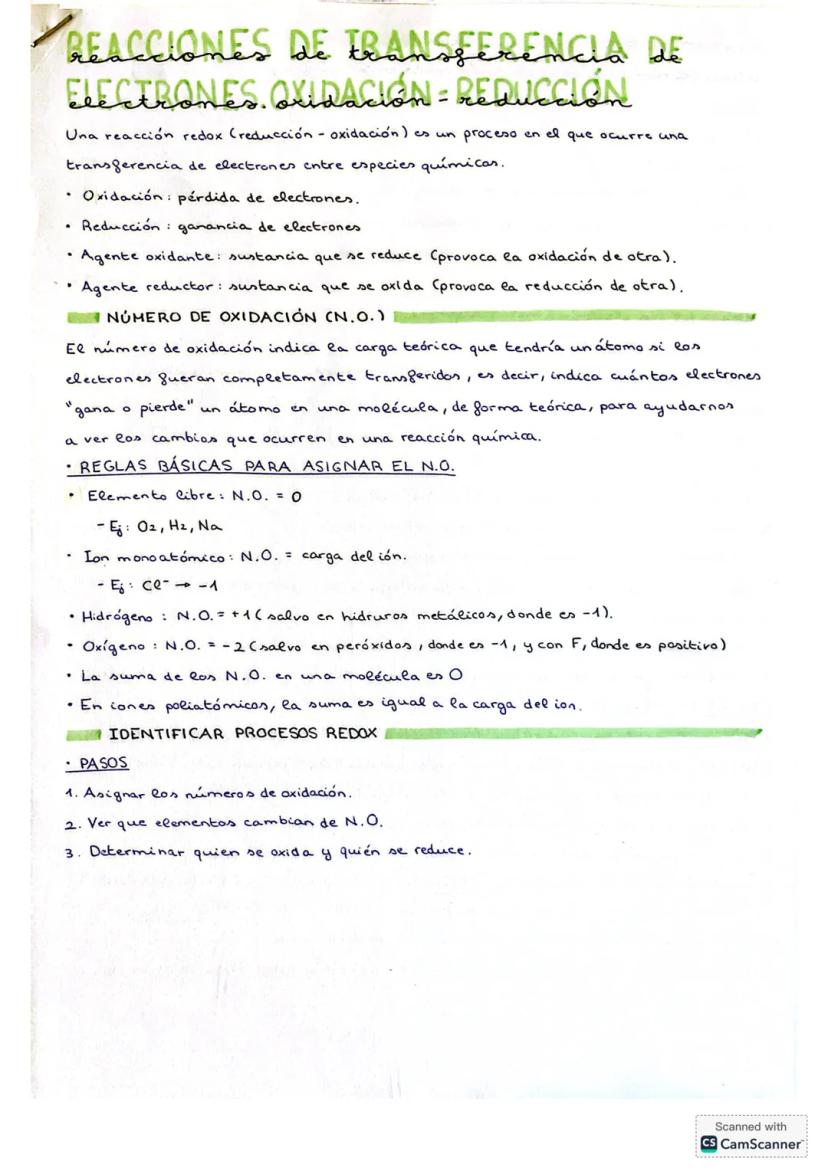 REACCIONES DE TRANSFERENCIA DE
reacciones de transferencia de
ELECTRONES. OXIDACIÓN - REDUCCIÓN
electrones. oxidación - reducción
Una reacción redox (reducción - oxidación) es un proceso en el que ocurre una
transferencia de electrones entre especies químicas.
• Oxidación: pérdida de electrones.
• Reducción: ganancia de electrones
• Agente oxidante: sustancia que se reduce (provoca la oxidación de otra).
• Agente reductor: sustancia que se oxida (provoca la reducción de otra).
NÚMERO DE OXIDACIÓN (N.O.)
El número de oxidación indica la carga teórica que tendría un átomo si los
electrones fueran completamente transferidos, es decir, indica cuántos electrones
"gana o pierde" un átomo en una molécula, de forma teórica, para ayudarnos
a ver los cambios que ocurren en una reacción química.
• REGLAS BÁSICAS PARA ASIGNAR EL N.O.
• Elemento libre: N.O. = 0
- Ej: O2, H2, Na
• Ion monoatómico: N.O. = carga del ión.
- Ej: Cl⁻ → -1
• Hidrógeno: N.O. = +1 (salvo en hidruros metálicos, donde es -1).
• Oxígeno: N.O. = -2 (salvo en peróxidos, donde es -1, y con F, donde es positivo)
• La suma de los N.O. en una molécula es 0
• En iones poliatómicos, la suma es igual a la carga del ion.
IDENTIFICAR PROCESOS REDOX
• PASOS
1. Asignar los números de oxidación.
2. Ver que elementos cambian de N.O.
3. Determinar quien se oxida y quién se reduce.
Scanned with
CS CamScanner